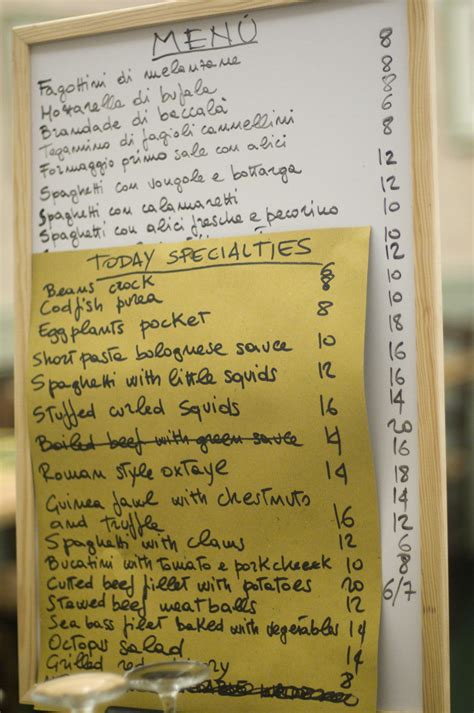 MENÚ
Fagottini di melanzane 8
Mozzarella di bufala 8
Brandade di baccalà 8
Tegamino di fagioli cannellini 6
Formaggio primo sale con alici 8
Spaghetti con vongole e bottarga 12
Spaghetti con calamaretti 12
Spaghetti con alici fresche e pecorino 10
10
12
10
10
18
16
16
14
20
16
18
14
12
6
8
6/7
TODAY SPECIALTIES
Beans crock 6
Codfish purea 8
Eggplants pocket 8
Short pasta bolognese sauce 10
Spaghetti with little squids 12
Stuffed curled Squids 16
Boiled beef with green sauce 14
Roman style oxtayl 14
Guinea fawl with chestnuts
and truffle 16
Spaghetti with clams 12
Bucatini with tomato e pork cheeek 10
Cutted beef fillet with potatoes 20
Stewed beef meatballs 12
Sea bass fillet baked with vegetables 14
Octopus salad 14
Grilled red 8